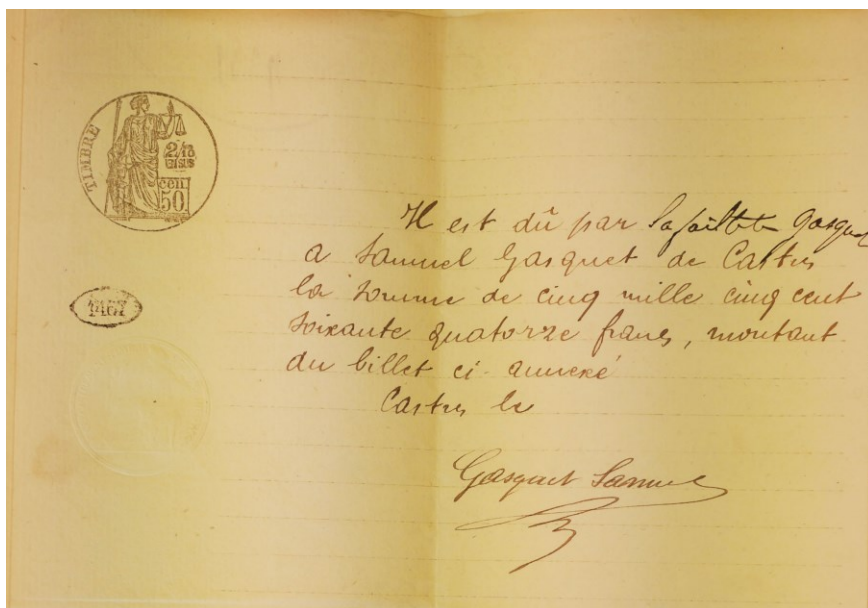 TIMBRE
2/10
EN SUS
cen
50
Il est dû par la faillite Gasquet
a Samuel Gasquet de Castres
la somme de cinq mille cinq cent
soixante quatorze francs, montant
du billet ci annexé
Castres le
Gasquet Samuel